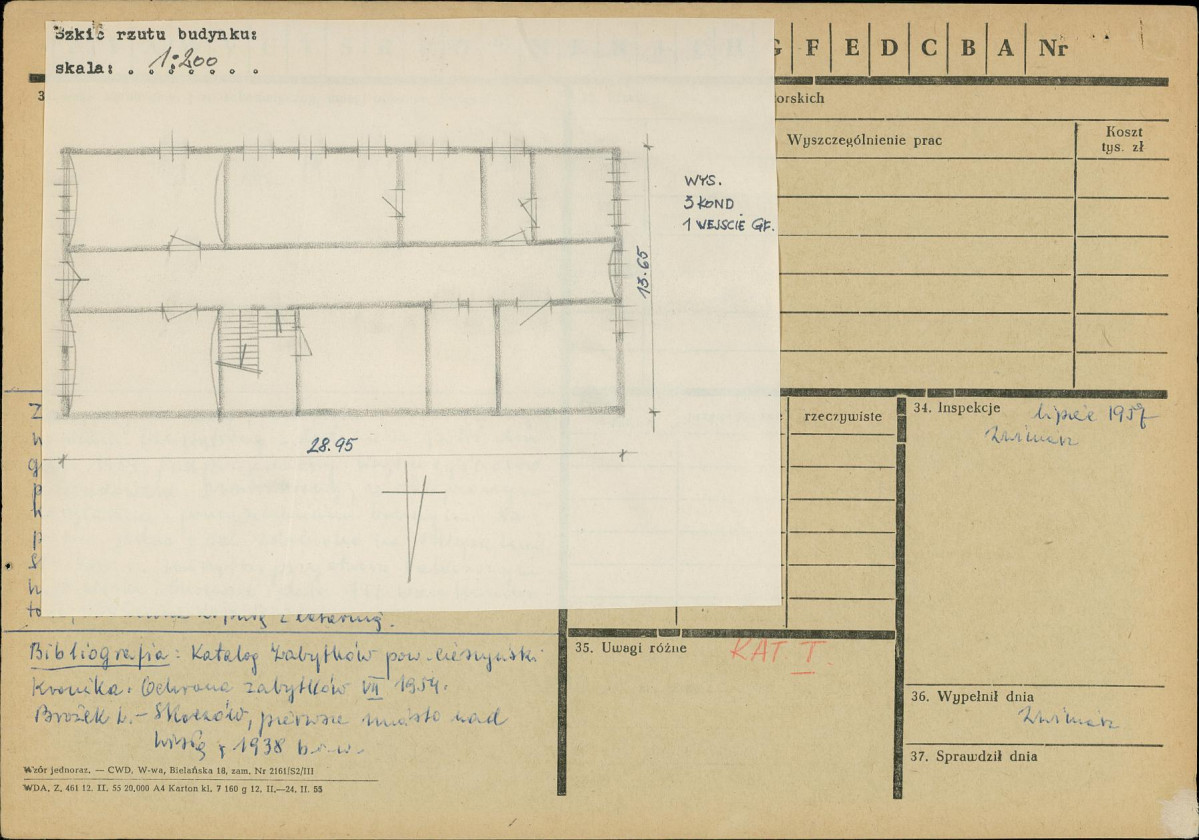 Szkic rzutu budynku:
skala: . 1:200 . .
G F E D C B A Nr
3
orskich
Wyszczególnienie prac
Koszt
tys. zł
WYS.
3 KOND
1 WEJSCIE GŁ.
13.65
28.95
e
rzeczywiste
34. Inspekcje
lipiec 1957
35. Uwagi różne
KAT. I.
36. Wypełnił dnia
37. Sprawdził dnia
Bibliografia: Katalog Zabytków pow. cieszyński
Kronika: Ochrona zabytków VII 1954.
Brożek L. - Skoczów, pierwsze miasto nad
Wisłą z 1938
Wzór jednoraz. — CWD, W-wa, Bielańska 18, zam. Nr 2161/S2/III
WDA. Z. 461 12. II. 55 20,000 A4 Karton kl. 7 160 g 12. II.—24. II. 55